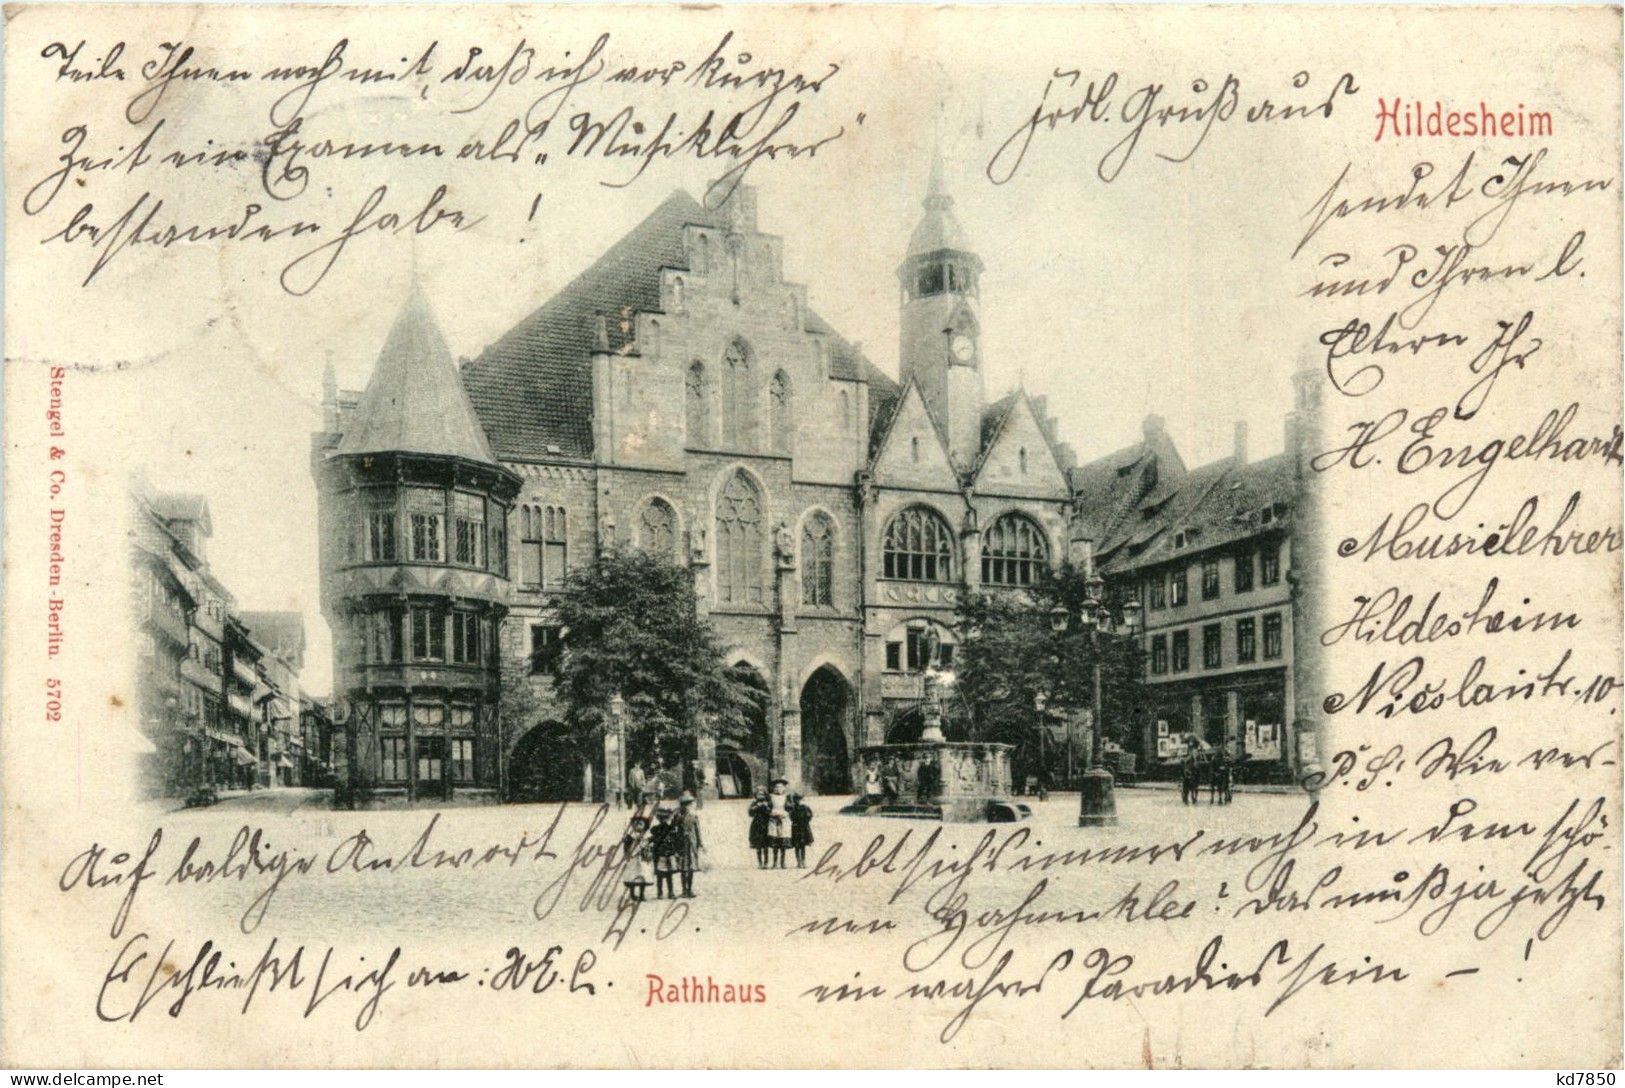 Teile Ihnen noch mit, daß ich vor kurzer
Zeit ein Examen als „Musiklehrer"
bestanden habe !
Frdl. Gruß aus
Hildesheim
sendet Ihnen
und Ihren l.
Eltern Ihr
H. Engelhardt
Musiklehrer
Hildesheim
Nicolaistr. 10.
P.S! Wie ver-
lebt sich's immer noch in dem schö-
nen Hahnenklee? Das muß ja jetzt
ein wahres Paradies sein – !
Auf baldige Antwort hofft
D. O.
Es schließt sich an:
Rathhaus
Stengel & Co. Dresden-Berlin. 5702
www.delcampe.net
kd7850